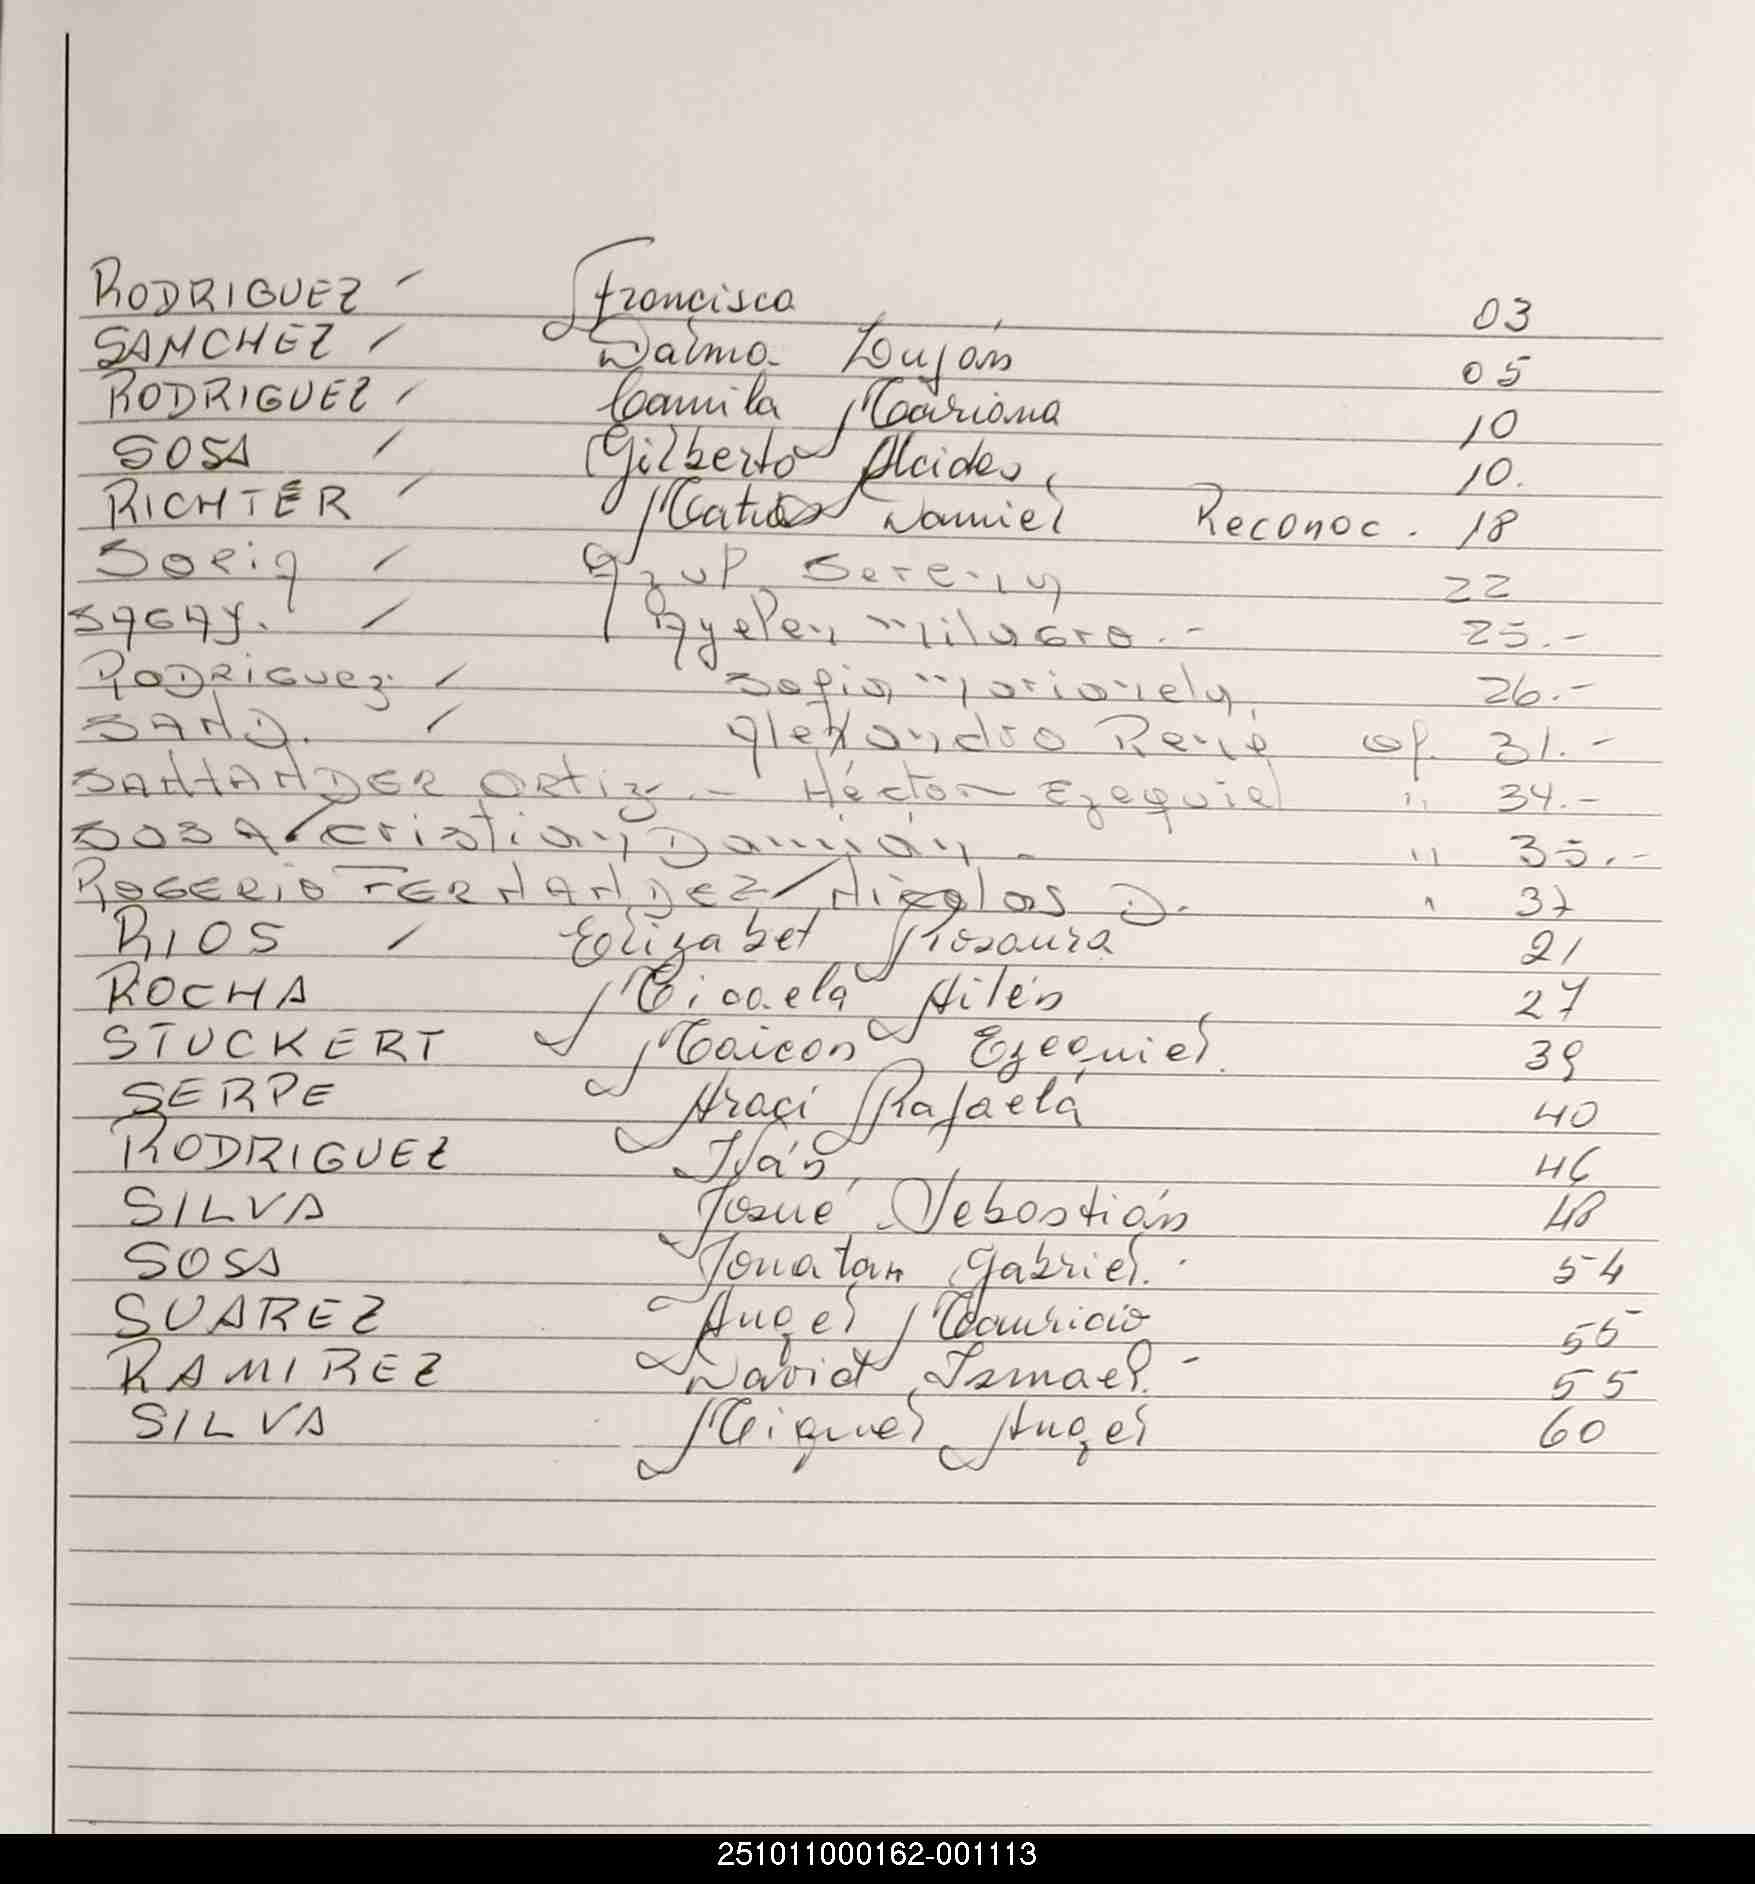 RODRIGUEZ / Francisco 03
SANCHEZ / Dalma Luján 05
RODRIGUEZ / Camila Mariana 10
SOSA / Gilberto Alcides 10.
RICHTER / Matias Daniel Reconoc. 18
Soria / Azul Serena 22
SAGAY. / Ayelen Milagro.- 25.-
RODRIGUEZ. / Sofia Marianela 26.-
SAND. / Alexandro René of. 31.-
SANTANDER ORTIZ.- Héctor Ezequiel " 34.-
SOSA / Cristian Damián.- " 35.-
ROGERIO FERNANDEZ / Nicolas D. " 37
RIOS / Elizabet Rosaura 21
ROCHA Micaela Ailén 27
STUCKERT Maicon Ezequiel. 39
SERPE Araci Rafaela 40
RODRIGUEZ Iván 46
SILVA Josué Sebastián 48
SOSA Jonatan Gabriel. 54
SUAREZ Angel Mauricio 55
RAMIREZ David Ismael.- 55
SILVA Miguel Angel 60
251011000162-001113